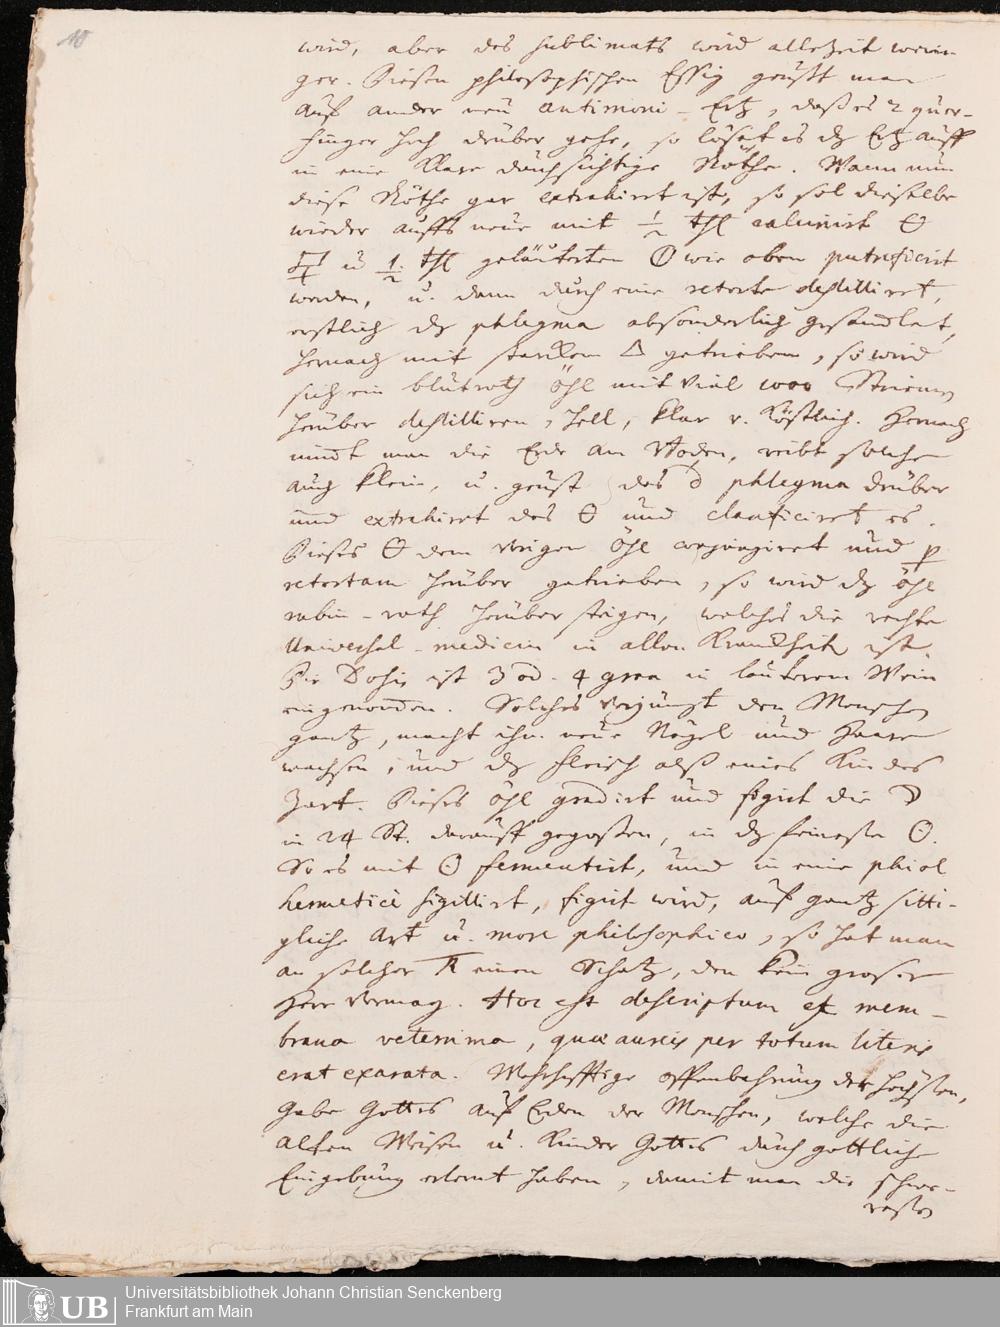 10
wird, aber des sublimats wird allezeit wenin-
ger. Diesen philosophischen Essig geüst man
auf ander neü antimoni-Ertz, daß es 2 quer-
finger hoch drüber gehe, so löset es dz Ertz auff
in eine klare durchsichtige Röthe. Wann nun
diese Röthe gar extrahirt ist, so sol dieselbe
wieder auffs neüe mit ½ thl calcinirt
u ½ thl geläuterten wie oben putreficirt
werden, u. dann durch eine retorte destillirt,
erstlich dz phlegma absonderlich gesamlet,
hernach mit starckem △ getrieben, so wird
sich ein blutroth öhl mit viel 1000 Striemen
herüber destilliren, hell, klar v. köstlich. Hernach
nimt man die Erde am Boden, reibt solche
auch klein, u. geust des phlegma drüber
und extrahirt des und clarificirt es.
Dieses dem vorigen öhl conjungiret und p
retortam herüber getrieben, so wird dz öhl
rubin-roth herüber steigen, welches die rechte
Universal-medicin in allen Kranckheit ist.
Die Dosis ist 3 od. 4 gran in lauterem Wein
eingenommen. Solches verjüngt den Menschen
gantz, macht ihm neüe Nägel und Haare
wachsen, und dz fleisch alß eines Kindes
Zart. Dieses öhl gradirt und figirt die ☽
in 24 St. darauff gegoßen, in dz feineste ☉.
So es mit ☉ fermentirt, und in eine phiol
hermeticè sigillirt, figirt wird, auf gantz sitti-
gliche Art u. more philosophico, so hat man
an solcher einen Schatz, den kein großer
Herr vermag. Hoc est descriptum ex mem-
brana veterrima, quae aureis per totum literis
erat exarata. Wahrhafftige offenbahrung der höchsten,
Gabe Gottes auf Erden der Menschen, welche die
alten Weisen u. Kinder Gottes durch gottliche
Eingebung erlernt haben, damit man die schwe-
resten
UB
Universitätsbibliothek Johann Christian Senckenberg
Frankfurt am Main